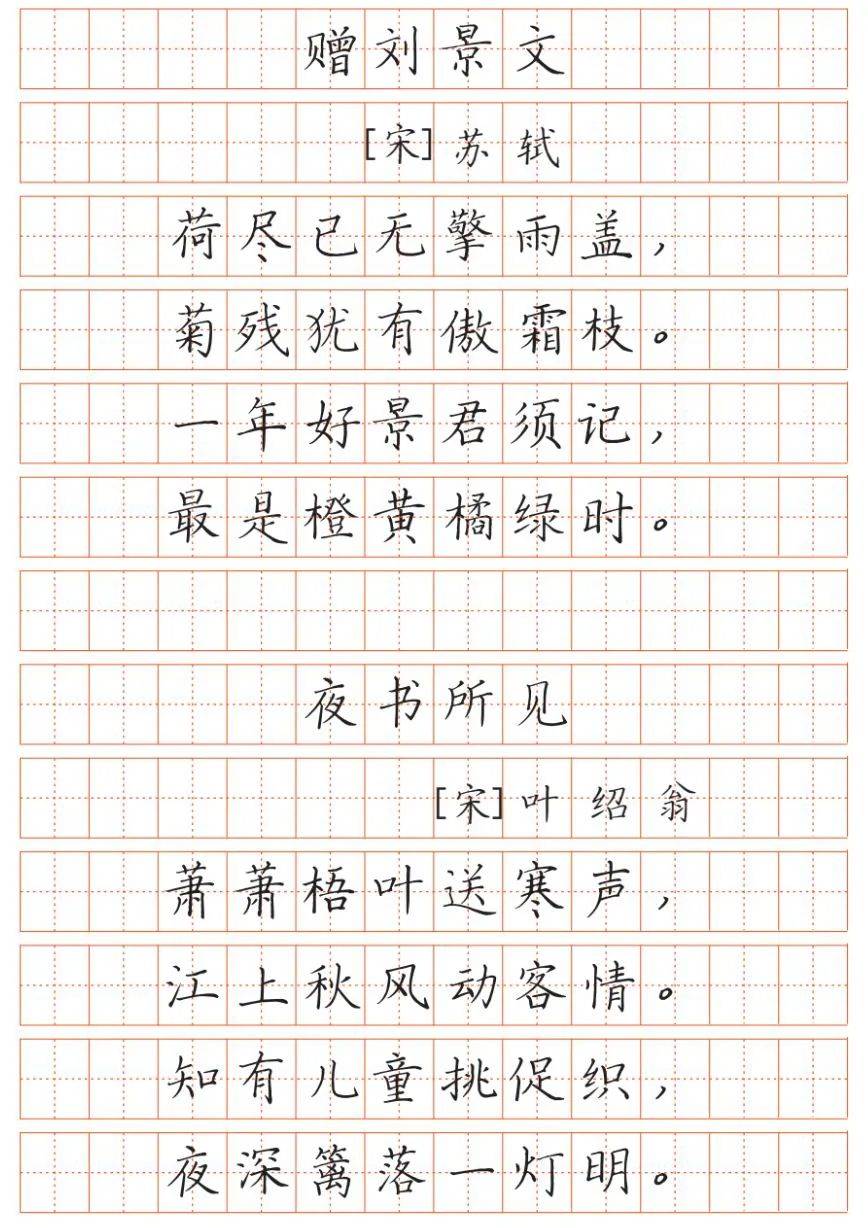 赠刘景文
[宋]苏轼
荷尽已无擎雨盖，
菊残犹有傲霜枝。
一年好景君须记，
最是橙黄橘绿时。
夜书所见
[宋]叶绍翁
萧萧梧叶送寒声，
江上秋风动客情。
知有儿童挑促织，
夜深篱落一灯明。